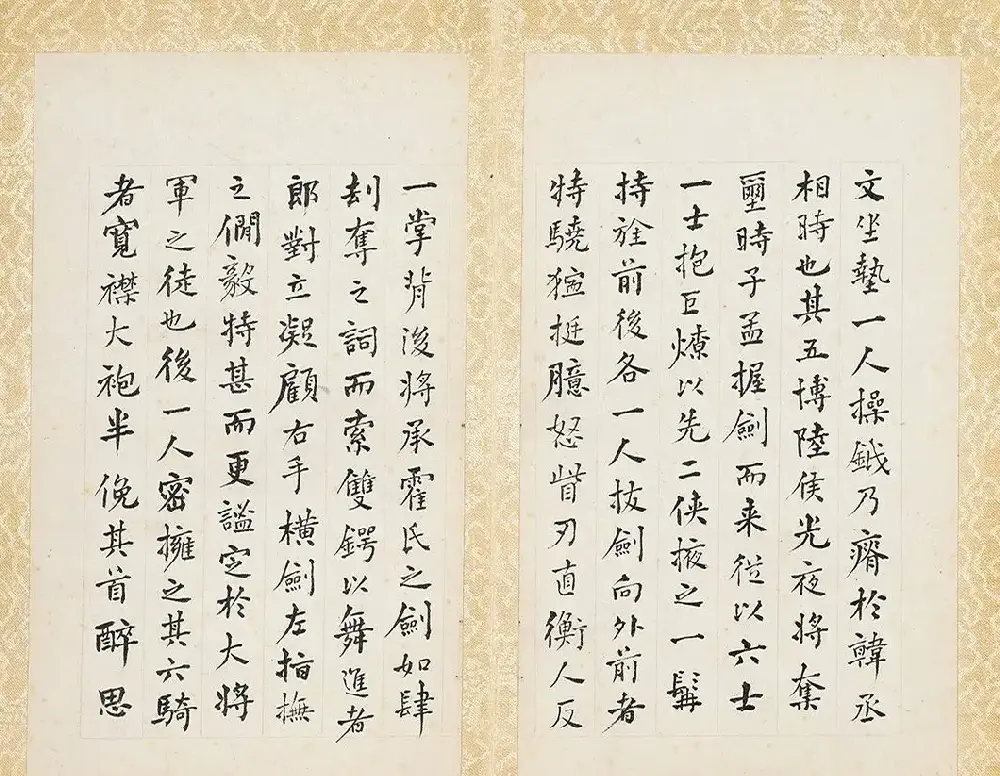 文坐墊一人操鉞乃瘠於韓丞
相時也其五博陸侯光夜將奪
璽時子孟握劍而来從以六士
一士抱巨燎以先二俠掖之一髯
持旌前後各一人拔劍向外前者
特驍猛挺臆怒眥刃直衝人反
一掌背後將承霍氏之劍如肆
刦奪之詞而索雙鍔以舞進者
郎對立凝顧右手橫劍左指撫
之僩毅特甚而更謐定於大將
軍之徒也後一人密擁之其六騎
者寬襟大袍半俛其首醉思